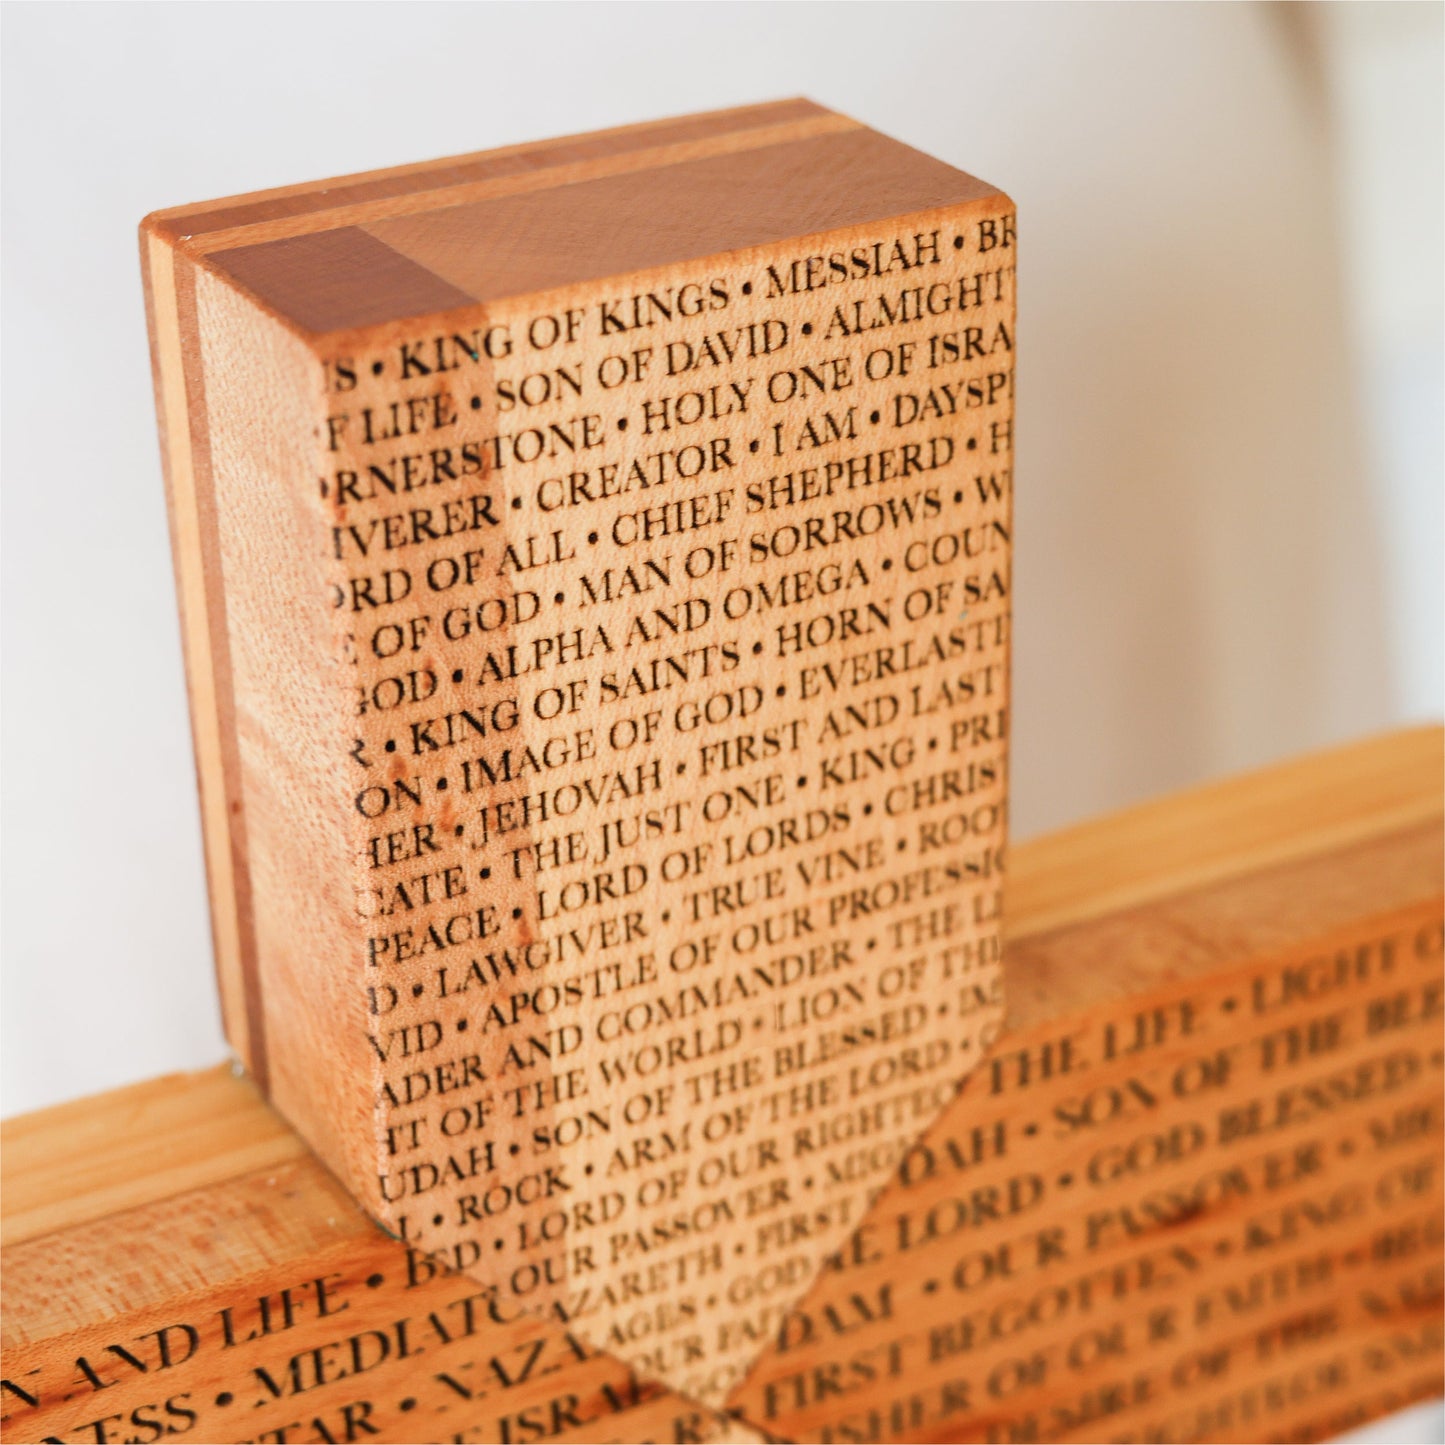 • KING OF KINGS • MESSIAH •
F LIFE • SON OF DAVID • ALMIGHT
RNERSTONE • HOLY ONE OF ISRA
VERER • CREATOR • I AM • DAYSP
ORD OF ALL • CHIEF SHEPHERD • H
E OF GOD • MAN OF SORROWS • W
GOD • ALPHA AND OMEGA • COUN
R • KING OF SAINTS • HORN OF SA
ON • IMAGE OF GOD • EVERLASTI
HER • JEHOVAH • FIRST AND LAST
CATE • THE JUST ONE • KING • PRI
PEACE • LORD OF LORDS • CHRIST
D • LAWGIVER • TRUE VINE • ROO
VID • APOSTLE OF OUR PROFESSIO
ADER AND COMMANDER • THE LI
HT OF THE WORLD • LION OF THE
UDAH • SON OF THE BLESSED •
L • ROCK • ARM OF THE LORD •
LORD OF OUR RIGHTEO
OUR PASSOVER • MIGH
AZARETH • FIRST
AGES • GOD
OUR FA
THE LIFE • LIGHT O
DAH • SON OF THE
LORD • GOD BLESSED •
DAM • OUR PASSOVER •
FIRST BEGOTTEN • KING OF
ISHER OF OUR FAITH •
DESIRE OF THE
N AND LIFE •
NESS • MEDIATO
STAR • NAZA
OF ISRAE